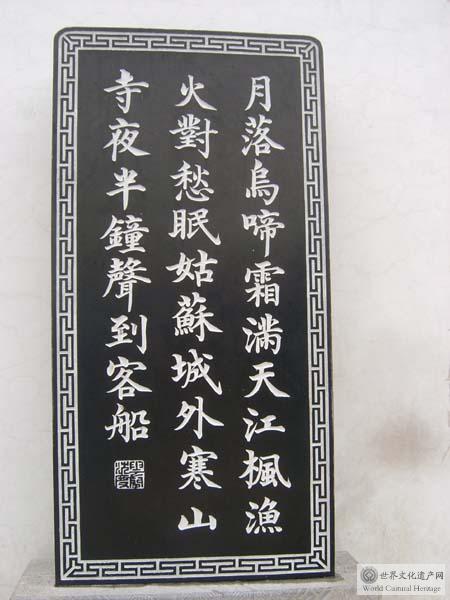 月落烏啼霜滿天江楓漁
火對愁眠姑蘇城外寒山
寺夜半鐘聲到客船
世界文化遗产网
World Cultural Heritage